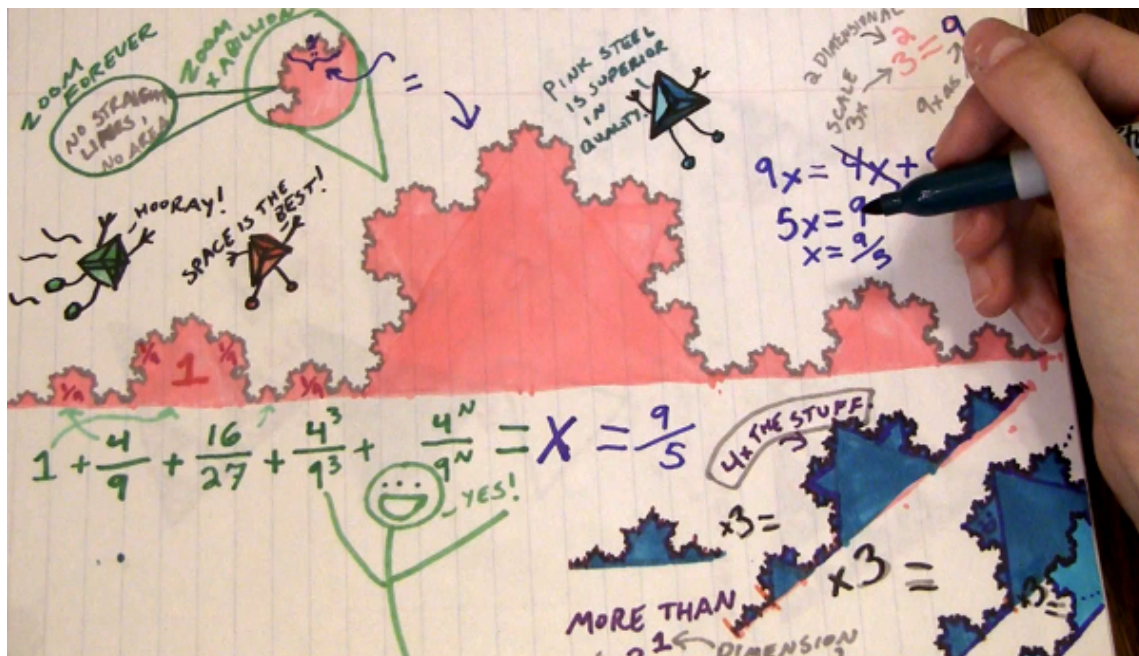 ZOOM FOREVER
ZOOM
X A BILLION
NO STRAIGHT
LINES,
NO AREA
=
PINK STEEL
IS SUPERIOR
IN
QUALITY!
2 DIMENSIONAL
3² = 9
SCALE
3X
9X AS
9x = 4x +
5x = 9
x = 9/5
HOORAY!
SPACE IS THE
BEST!
1/9 1/9 1 1/9 1/9
1 + 4/9 + 16/27 + 4³/9³ + 4ᴺ/9ᴺ = X = 9/5
YES!
4X THE STUFF
x3 =
x3 =
x3 =
MORE THAN
1
DIMENSION